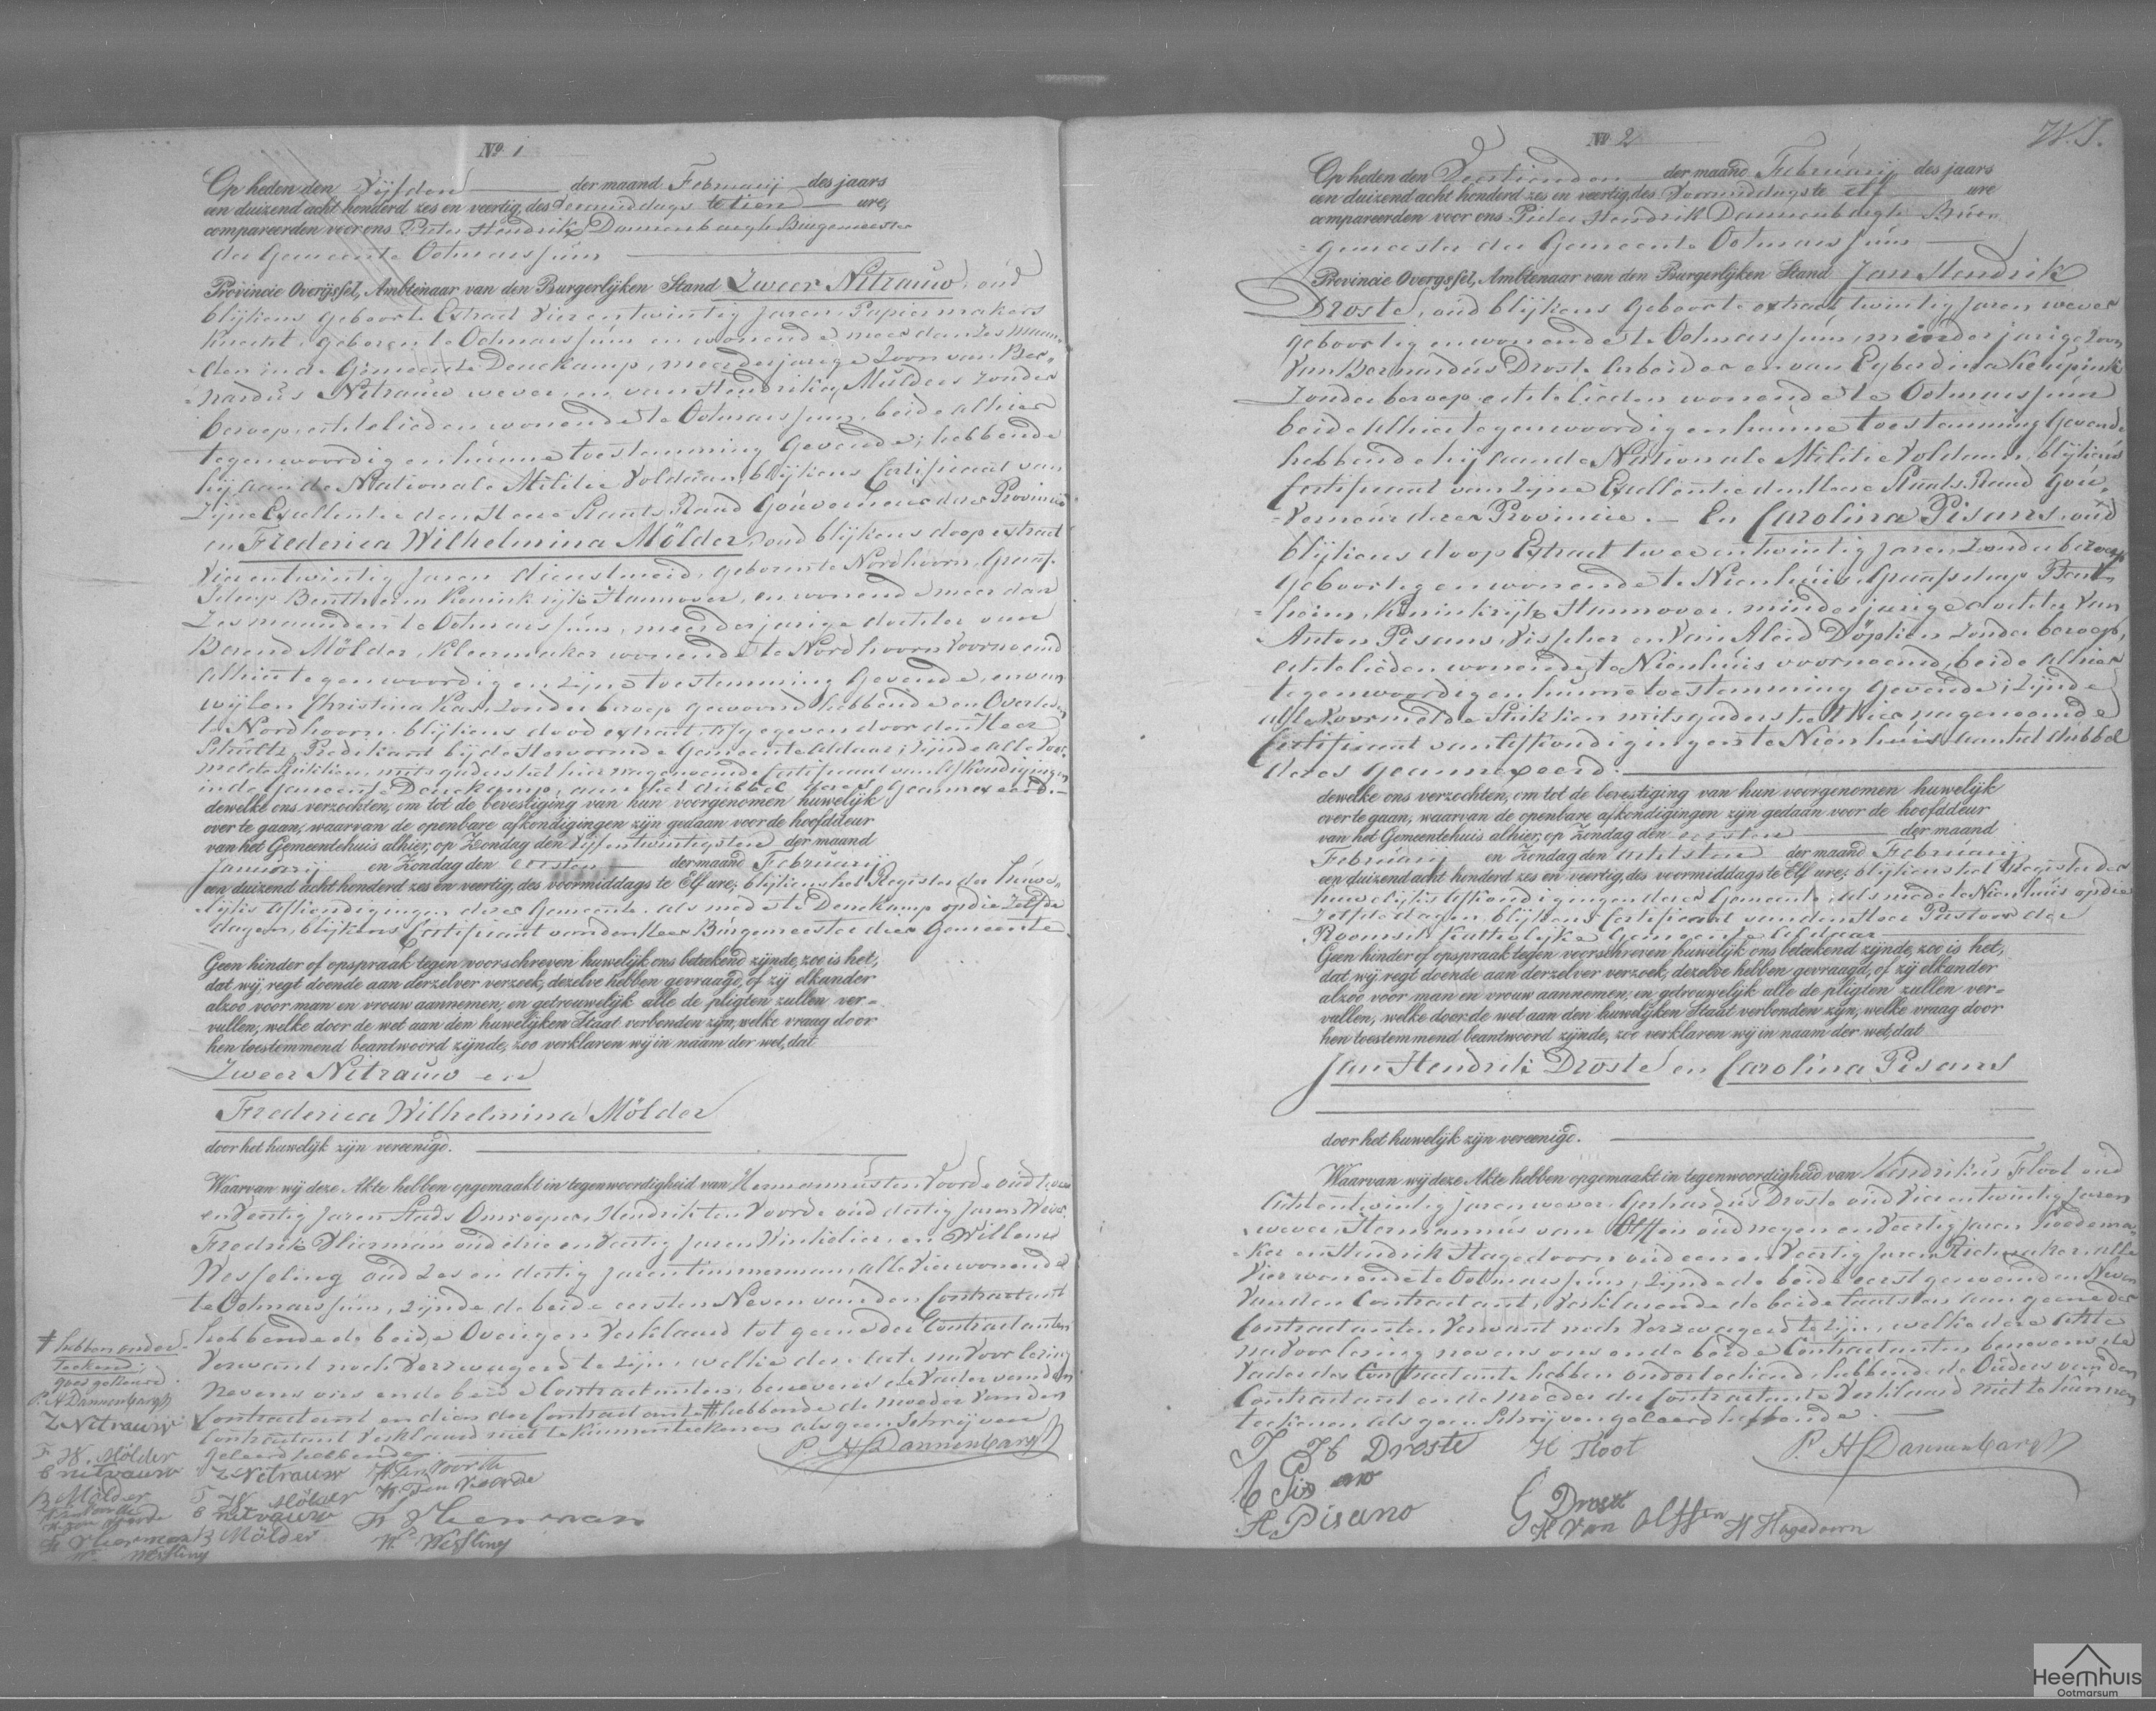 Nº 1
Op heden den Vijfden der maand Februarij des jaars
een duizend acht honderd zes en veertig, des voormiddags te tien ure,
compareerden voor ons Pieter Hendrik Dannenbargh Burgemeester
der Gemeente Ootmarssum
Provincie Overijssel, Ambtenaar van den Burgerlijken Stand Zweer Nitrauw, oud
blijkens geboorte Extract Vier en twintig Jaren Papiermakers
knecht, geboren te Ootmarssum en wonende meer dan zes maan-
den in de Gemeente Denekamp, meerderjarige Zoon van Ber-
nardus Nitrauw wever, en van Hendrika Mulders Zonder
beroep, echtelieden wonende te Ootmarssum, beide alhier
tegenwoordig en hunne toestemming Gevende; hebbende
hij aan de Nationale Militie Voldaan, blijkens Certificaat van
Zijne Excellentie den Heere Staats Raad Gouverneur dezer Provincie
en Frederica Wilhelmina Mölder, oud blijkens doop extract
Vier en twintig Jaren dienstmeid, geboren te Nordhoorn, Graaf-
schap Bentheim Koninkrijk Hannover, en wonende meer dan
Zes maanden te Ootmarssum, meerderjarige dochter van
Berend Mölder, Kleermaker wonende te Nordhoorn Voornoemd
alhier tegenwoordig en zijne toestemming Gevende, en van
wijlen Christina Kas, Zonder beroep gewoond hebbende en Overleden
te Nordhoorn blijkens dood extract, afgegeven door den Heer
Schultz, Predikant bij de Hervormde Gemeente aldaar; zijnde alle voor-
melde Stukken, mitsgaders het hier nagenoemde Certificaat van Afkondigingen
in de Gemeente Denekamp, aan het dubbel dezes Geannexeerd.
dewelke ons verzochten, om tot de bevestiging van hun voorgenomen huwelijk
over te gaan, waarvan de openbare afkondigingen zijn gedaan voor de hoofddeur
van het Gemeentehuis alhier, op Zondag den Vijf en twintigsten der maand
Januarij en Zondag den eersten der maand Februarij
een duizend acht honderd zes en veertig, des voormiddags te Elf ure; blijkens het Register der Huwe-
lijks Afkondigingen dezer Gemeente, als mede te Denekamp op die Zelfde
dagen, blijkens Certificaat van den Heer Burgemeester dier Gemeente
Geen hinder of opspraak tegen voorschreven huwelijk ons bekend zijnde, zoo is het,
dat wij, regt doende aan derzelver verzoek, dezelve hebben gevraagd, of zij elkander
alzoo voor man en vrouw aannemen, en getrouwelijk alle de pligten zullen ver-
vullen, welke door de wet aan den huwelijken Staat verbonden zijn, welke vraag door
hen toestemmend beantwoord zijnde, zoo verklaren wij in naam der wet, dat
Zweer Nitrauw en
Frederica Wilhelmina Mölder
door het huwelijk zijn vereenigd.
Waarvan wij deze Akte hebben opgemaakt in tegenwoordigheid van Hermannus ten Voorde oud twee
en Veertig Jaren Stads Omroeper, Hendrik ten Voorde oud dertig Jaren Wever
Fredrik Vlierman oud drie en Veertig Jaren Winkelier, en Willem
Wesseling oud zes en dertig Jaren timmerman, alle Vier wonende
te Ootmarssum, zijnde de beide eersten Neven van den Contractant
hebbende de beide Overigen Verklaard tot geene der Contractanten
Verwant noch Verzwagerd te zijn, welke deze Acte na Voorlezing
nevens ons en de beide Contractanten, benevens de Vader van den
Contractant en dien der Contractante # hebbende de moeder van den
Contractant Verklaard niet te kunnen teekenen als geen Schrijven
geleerd hebbende.
# hebben onder-
teekend.
goedgekeurd
P. H Dannenbargh
Z Nitrauw
F W. Mölder
B nitrauw
B Mölder
H ten Voorde
H. Ten Voorde
F Vlierman
W. Wesling
P. H Dannenbargh
Z Nitrauw H ten Voorde
F W. Mölder H. Ten Voorde
B nitrauw F Vlierman
B Mölder W. Wesling
Nº 2
W. J.
Op heden den Veertienden der maand Februarij des jaars
een duizend acht honderd zes en veertig, des Voormiddags te elf ure
compareerden voor ons Pieter Hendrik Dannenbargh Bur-
gemeester der Gemeente Ootmarssum
Provincie Overijssel, Ambtenaar van den Burgerlijken Stand Jan Hendrik
Droste, oud blijkens Geboorte extract twintig Jaren wever
geboortig en wonende te Ootmarssum, minderjarige Zoon
Van Bernardus Droste Arbeider en van Eyberdina Keupink
Zonder beroep echtelieden wonende te Ootmarssum
beide alhier tegenwoordig en hunne toestemming Gevende
hebbende hij aan de Nationale Militie Voldaan, blijkens
Certificaat van Zijne Excellentie den Heere Staats Raad Gou-
verneur dezer Provincie. — En Carolina Pisans, oud
blijkens doop Extract twee en twintig Jaren Zonder beroep
Geboortig en wonende te Nienhuis, Graafschap Bent-
heim, Koninkrijk Hannover, minderjarige dochter Van
Anton Pisans, Visscher en Van Aleid Döpken Zonder beroep,
echtelieden wonende te Nienhuis voornoemd, beide alhier
tegenwoordig en hunne toestemming Gevende; Zijnde
alle Voormelde Stukken mitsgaders het hier nagenoemde
Certificaat van Afkondigingen te Nienhuis aan het dubbel
dezes geannexeerd.
dewelke ons verzochten, om tot de bevestiging van hun voorgenomen huwelijk
over te gaan, waarvan de openbare afkondigingen zijn gedaan voor de hoofddeur
van het Gemeentehuis alhier, op Zondag den eersten der maand
Februarij en Zondag den achtsten der maand Februarij
een duizend acht honderd zes en veertig, des voormiddags te Elf ure; blijkens het Register der
huwelijks Afkondigingen dezer Gemeente, als mede te Nienhuis op die
Zelfde dagen, blijkens Certificaat van den Heer Pastoor der
Roomsch Katholijke Gemeente aldaar
Geen hinder of opspraak tegen voorschreven huwelijk ons bekend zijnde, zoo is het,
dat wij, regt doende aan derzelver verzoek, dezelve hebben gevraagd, of zij elkander
alzoo voor man en vrouw aannemen, en getrouwelijk alle de pligten zullen ver-
vullen, welke door de wet aan den huwelijken Staat verbonden zijn, welke vraag door
hen toestemmend beantwoord zijnde, zoo verklaren wij in naam der wet, dat
Jan Hendrik Droste en Carolina Pisans
door het huwelijk zijn vereenigd.
Waarvan wij deze Akte hebben opgemaakt in tegenwoordigheid van Hendrikus Floot oud
Acht en twintig Jaren wever, Gerhardus Droste oud Vier en twintig Jaren
wever, Hermannus van Olffen oud negen en Veertig Jaren hoedema-
ker en Hendrik Hagedoorn oud een en Veertig Jaren Stoelmaker, alle
Vier wonende te Ootmarssum, Zijnde de beide eerstgenoemden Neven
Van den Contractant, Verklarende de beide laatsten aan geene der
Contractanten Verwant noch Verzwagerd te zijn, welke deze Acte
na Voorlezing nevens ons en de beide Contractanten benevens de
Vader der Contractante hebben onderteekend, hebbende de Ouders van den
Contractant en de moeder der Contractante Verklaard niet te kunnen
teekenen als geen Schrijven geleerd hebbende.
J H Droste H Floot P. H Dannenbargh
C Pisano
A Pisano G Droste
H Van Olffen H Hagedoorn
Heemhuis
Ootmarsum